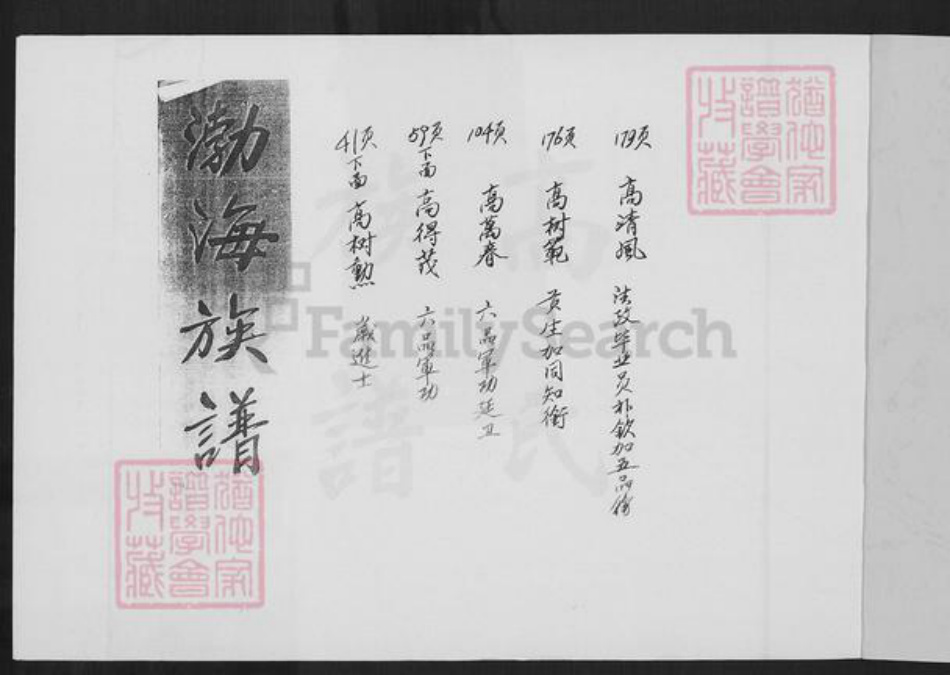 173页 高清風 法政毕业员补欽加五品銜
176页 高树範 貢生加同知銜
104页 高萬春 六品軍功
59页下面 高得茂 六品軍功
41页下面 高树勲 歲進士
渤海族譜
猶他家譜學會收藏
猶他家譜學會收藏
高氏族譜
FamilySearch